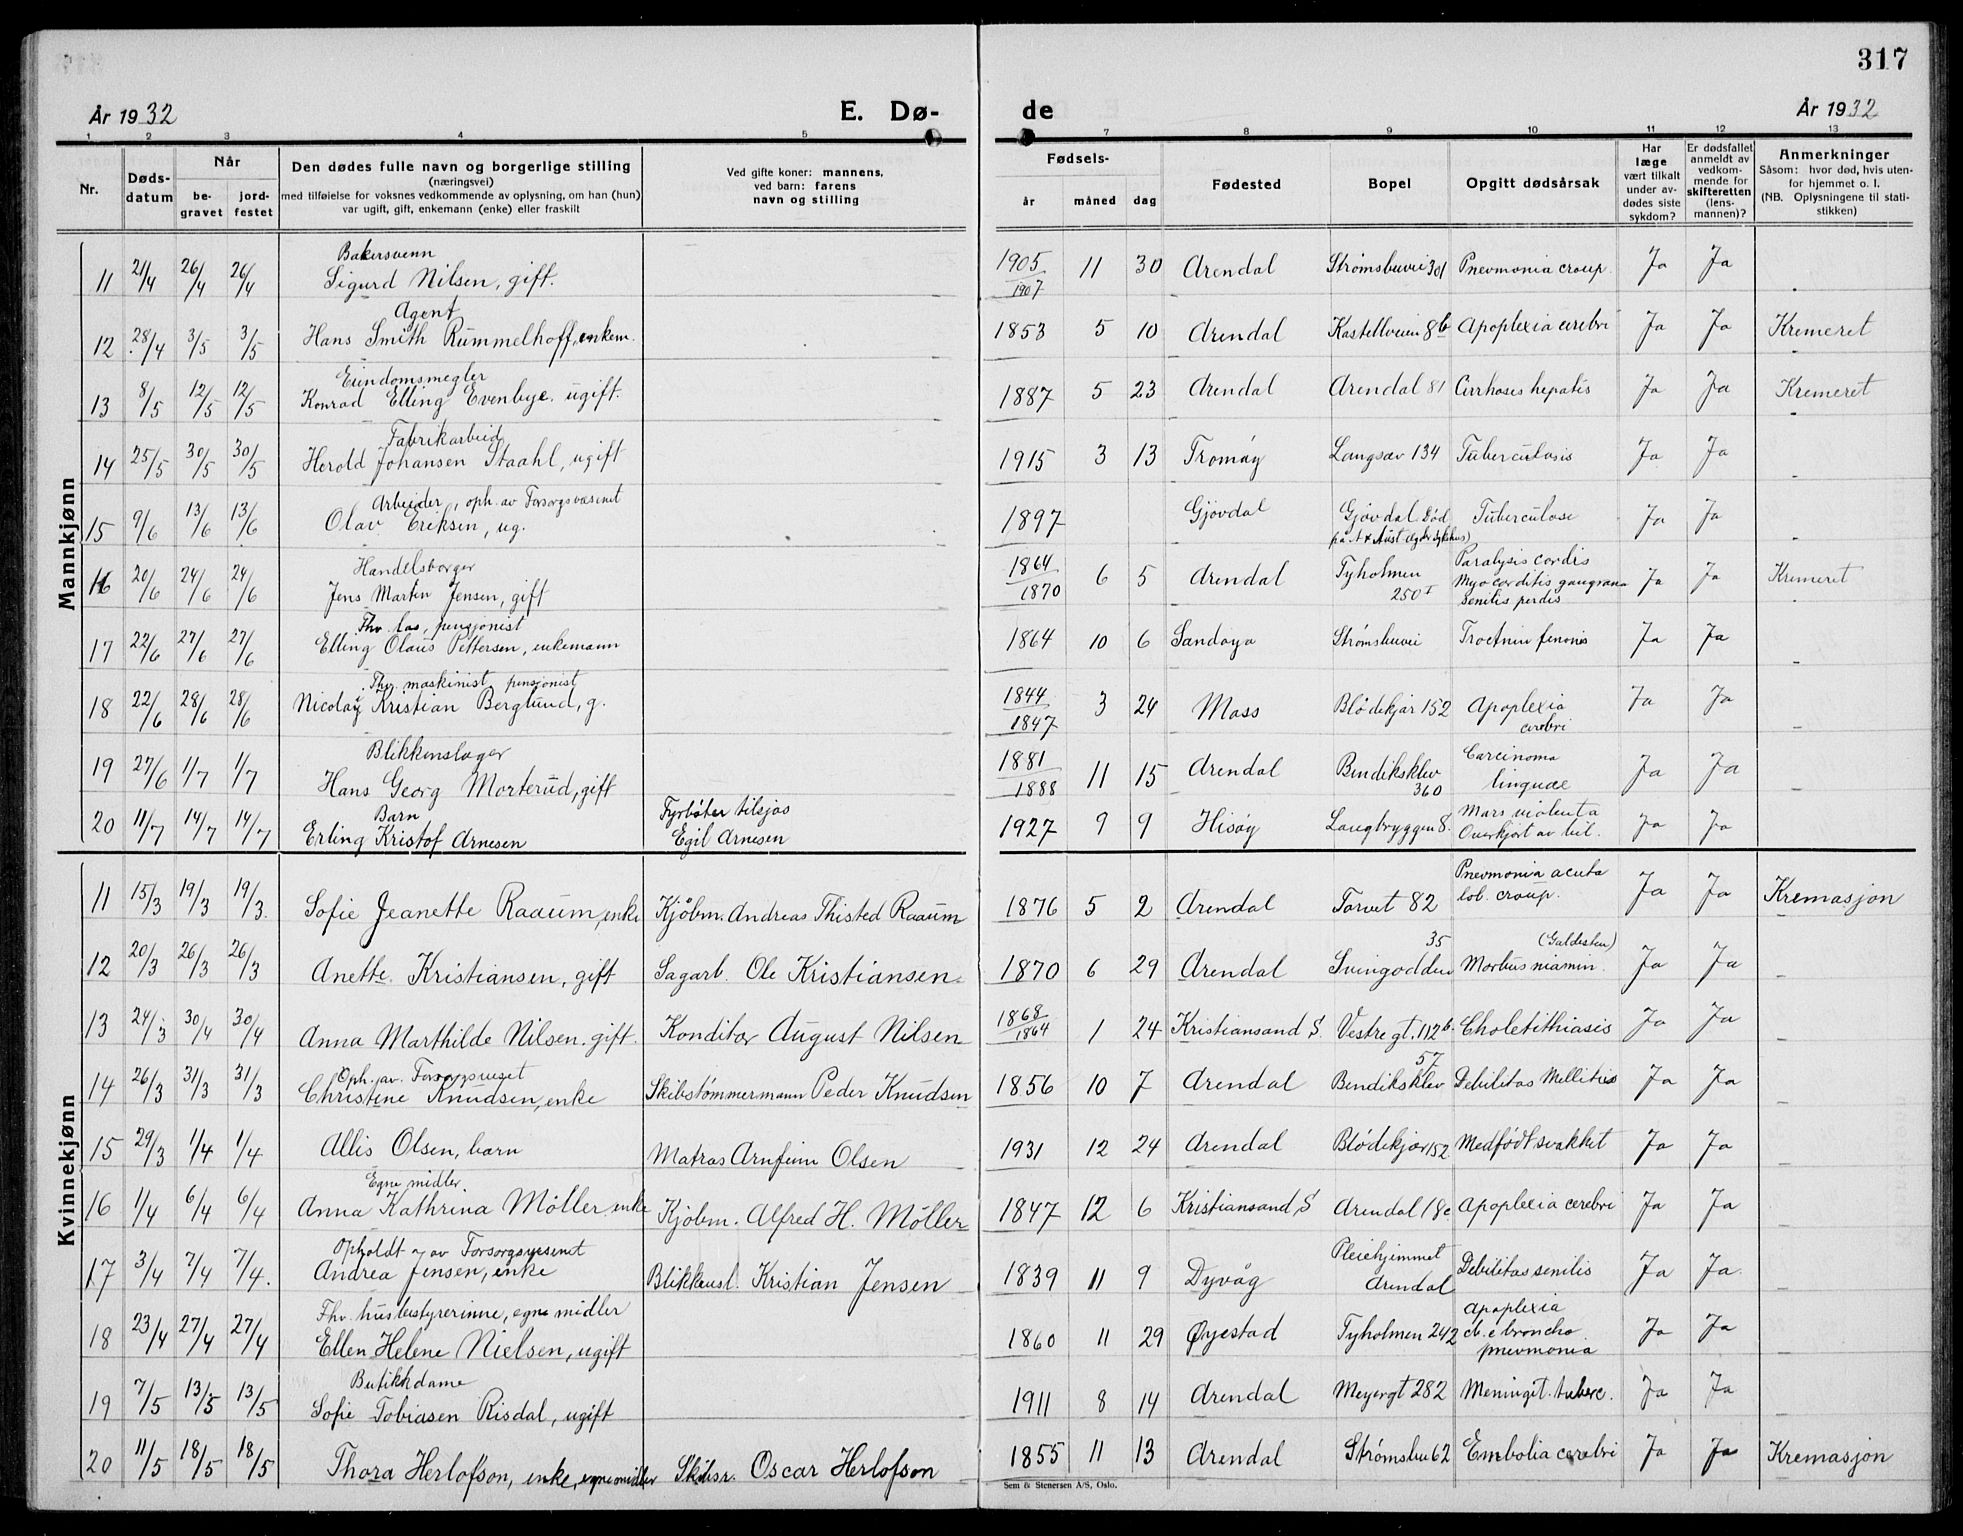 317
År 1932 E. Dø- de År 1932
1 2 3 4 5 7 8 9 10 11 12 13
Nr. Døds-datum Når be-gravet jord-festet Den dødes fulle navn og borgerlige stilling (næringsvei) med tilføielse for voksnes vedkommende av oplysning, om han (hun) var ugift, gift, enkemann (enke) eller fraskilt Ved gifte koner: mannens, ved barn: farens navn og stilling Fødsels- år måned dag Fødested Bopel Opgitt dødsårsak Har læge vært tilkalt under av-dødes siste sykdom? Er dødsfallet anmeldt av vedkom-mende for skifteretten (lens-mannen)? Anmerkninger Såsom: hvor død, hvis uten-for hjemmet o. l. (NB. Oplysningene til stati-stikken)
Mannkjønn
11 21/4 26/4 26/4 Bakersvenn Sigurd Nilsen, gift. 1905 1907 11 30 Arendal Strømsbuvei 301 Pnevmonia croup. Ja Ja
12 28/4 3/5 3/5 Agent Hans Smith Rummelhoff, enkem. 1853 5 10 Arendal Kastellveien 8b Apoplexia cerebri Ja Ja Kremeret
13 8/5 12/5 12/5 Eiendomsmegler Konrad Elling Evenbye. ugift. 1887 5 23 Arendal Arendal 81 Cirrhosis hepatis Ja Ja Kremeret
14 25/5 30/5 30/5 Fabrikarbeid Herold Johansen Staahl, ugift 1915 3 13 Tromøy Langsæv 134 Tuberculosis Ja Ja
15 9/6 13/6 13/6 Arbeider, oph. av Forsorgsvæsenet Olav Eriksen, ug. 1897 Gjøvdal Gjøvdal. Død på Aust agder sykehus) Tuberculose Ja Ja
16 20/6 24/6 24/6 Handelsborger Jens Martin Jensen, gift 1864 1870 6 5 Arendal Tyholmen 250 I Paralysis cordis Myocorditis gangræna senilis pedis Ja Ja Kremeret
17 22/6 27/6 27/6 Fhv. los, pensjonist Elling Olaus Pettersen, enkemann 1864 10 6 Sandøya Strømsbuvei Ja Ja
18 22/6 28/6 28/6 Fhv. maskinist pensjonist Nicolay Kristian Berglund, g. 1844 1847 3 24 Moss Blødekjær 152 Apoplexia cerebri Ja Ja
19 27/6 1/7 1/7 Blikkenslager Hans Georg Morterud, gift 1881 1888 11 15 Arendal Bendiksklev 360 Carcinoma linguae Ja Ja
20 11/7 14/7 14/7 Barn Erling Kristof Arnesen Fyrbøter tilsjøs Egil Arnesen 1927 9 9 Hisøy Langbryggen 8. Mars violenta Overkjørt av bil. Ja Ja
Kvinnekjønn
11 15/3 19/3 19/3. Sofie Jeanette Raaum, enke Kjøbm. Andreas Thisted Raaum 1876 5 2 Arendal Torvet 82 Pnevmonia acuta lob. croup. Ja Ja Kremasjon
12 20/3 26/3 26/3 Anette Kristiansen, gift Sagarb. Ole Kristiansen 1870 6 29 Arendal 35 Svingodden (Galdesten) Ja Ja
13 24/3 30/4 30/4 Anna Marthilde Nilsen. gift. Konditor August Nilsen 1868 1864 1 24 Kristiansand S. Vestre gt. 112b. Choletithiasis Ja Ja
14 26/3 31/3 31/3 Oph. av. Forsorgsveset Christine Knudsen, enke Skibstømmermann Peder Knudsen 1856 10 7 Arendal 57 Bendiksklev Debilitas Mellitus Ja Ja
15 29/3 1/4 1/4 Allis Olsen, barn Matros Arnfinn Olsen 1931 12 24 Arendal Blødekjær 152 Medfødt svakhet Ja Ja
16 1/4 6/4 6/4 Egne midler. Anna Kathrina Møller. enke Kjøbm. Alfred H. Møller 1847 12 6 Kristiansand S Arendal 18c Apoplexia cerebri Ja Ja
17 3/4 7/4 7/4. Opholdt av Forsorgsvesenet Andrea Jensen, enke Blikkensl. Kristian Jensen 1839 11 9 Dyvåg Pleiehjemmet Arendal Debilitas senilis Ja Ja.
18 23/4 27/4 27/4 Fhv. husbestyrerinne, egne midler Ellen Helene Nielsen, ugift 1860 11 29 Øyestad Tyholmen 242 Apoplexia cb. e broncho pnevmonia Ja Ja
19 7/5 13/5 13/5 Butikkdame Sofie Tobiasen Risdal, ugift 1911 8 14 Arendal Meyergt 282 Meningit. tuberc. Ja Ja
20 11/5 18/5 18/5 Thora Herlofson, enke, egne midler Skibsr. Oscar Herlofson 1855 11 13 Arendal Strømsbu 62 Embolia cerebri Ja Ja Kremasjon
Sem & Stenersen A/S, Oslo.